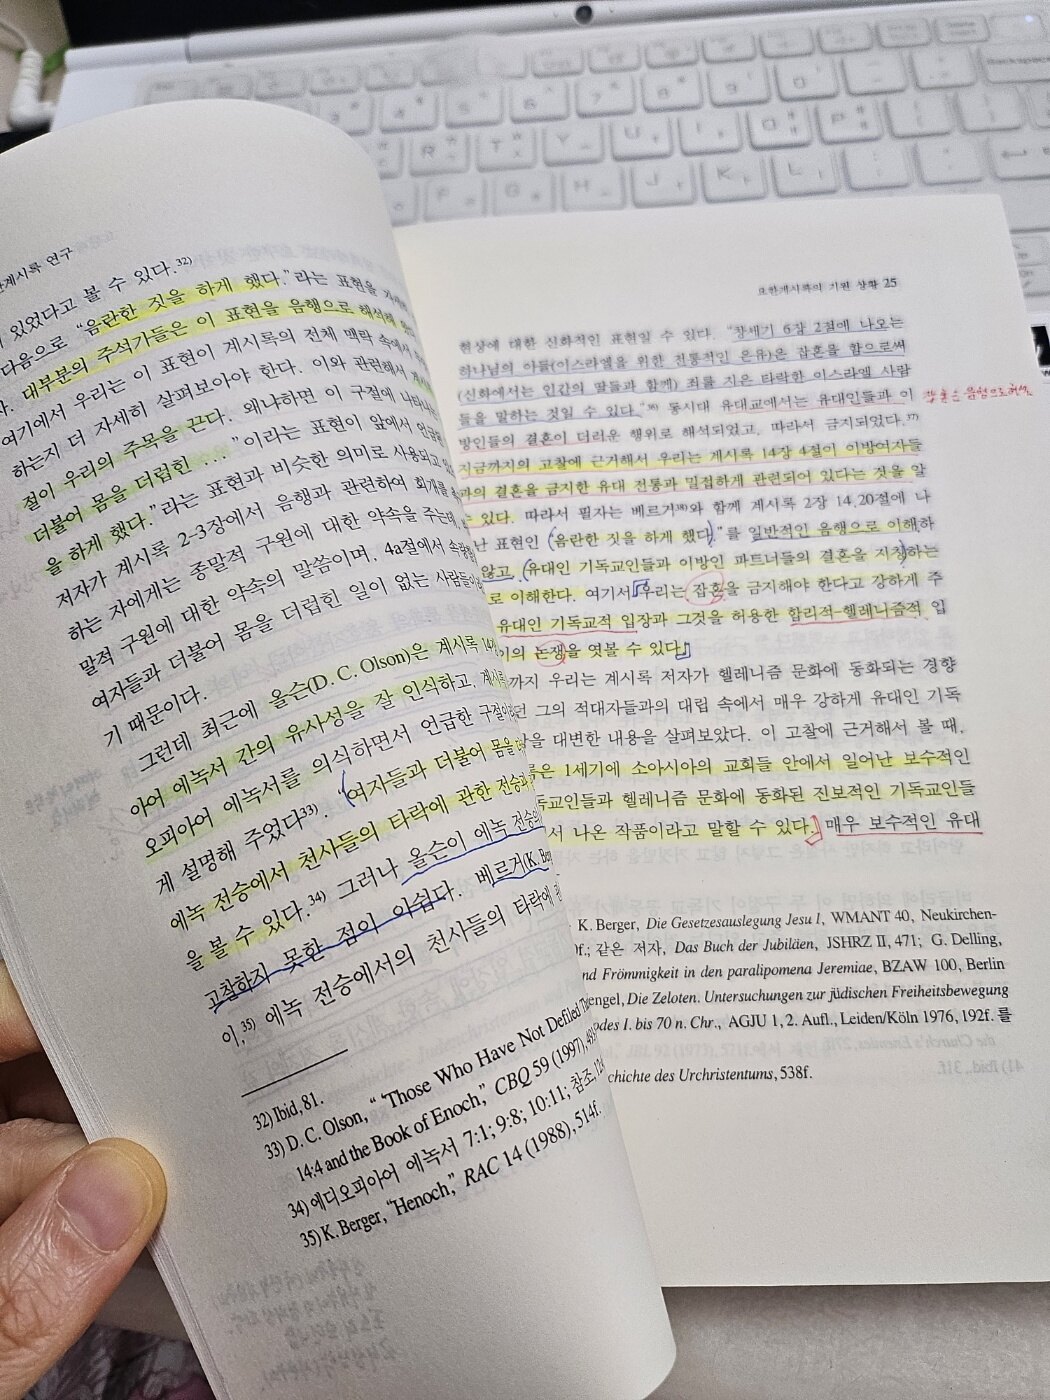 계시록 연구
있었다고 볼 수 있다.32)
다음으로 "음란한 것을 하게 했다."라는 표현을
대부분의 주석가들은 이 표현을 음행으로 해석해
여기에서 우리는 이 표현이 계시록의 전체 맥락 속에서
하는지 더 자세히 살펴보아야 한다. 이와 관련해서
절이 우리의 주목을 끈다. 왜냐하면 이 구절에
더불어 몸을 더럽힌 …"이라는 표현이 앞에서
을 하게 했다."라는 표현과 비슷한 의미로 사용되고
저자가 계시록 2-3장에서 음행과 관련하여 회개를
하는 자에게는 종말적 구원에 대한 약속을 주는데,
말적 구원에 대한 약속의 말씀이며, 4a절에서
여자들과 더불어 몸을 더럽힌 일이 없는 사람들이
기 때문이다.
그런데 최근에 올슨(D. C. Olson)은 계시록
아어 에녹서 간의 유사성을 잘 인식하고,
오피아어 에녹서를 의식하면서 언급한
게 설명해 주었다33). "여자들과 더불어 몸을
에녹 전승에서 천사들의 타락에 관한 전승과
을 볼 수 있다.34) 그러나 올슨이 에녹
고찰하지 못한 점이 아쉽다. 베르거(K.
이,35) 에녹 전승에서의 천사들의 타락에
32) Ibid, 81.
33) D. C. Olson, "'Those Who Have Not Defiled
14:4 and the Book of Enoch," CBQ 59 (1997),
34) 에디오피아어 에녹서 7:1; 9:8; 10:11; 참조,
35) K. Berger, "Henoch," RAC 14 (1988), 514f.
요한계시록의 기원 상황 25
현상에 대한 신화적인 표현일 수 있다. "창세기 6장 2절에 나오는
하나님의 아들(이스라엘을 위한 전통적인 은유)은 잡혼을 함으로써
(신화에서는 인간의 딸들과 함께) 죄를 지은 타락한 이스라엘 사람
들을 말하는 것일 수 있다."36) 동시대 유대교에서는 유대인들과 이
잡혼은 음행으로
방인들의 결혼이 더러운 행위로 해석되었고, 따라서 금지되었다.37)
지금까지의 고찰에 근거해서 우리는 계시록 14장 4절이 이방여자들
과의 결혼을 금지한 유대 전통과 밀접하게 관련되어 있다는 것을 알
있다. 따라서 필자는 베르거38)와 함께 계시록 2장 14, 20절에 나
난 표현인 "음란한 짓을 하게 했다."를 일반적인 음행으로 이해하
않고, 유대인 기독교인들과 이방인 파트너들의 결혼을 지칭하는
로 이해한다. 여기서 우리는 잡혼을 금지해야 한다고 강하게 주
유대인 기독교적 입장과 그것을 허용한 합리적-헬레니즘적 입
의 논쟁을 엿볼 수 있다.
까지 우리는 계시록 저자가 헬레니즘 문화에 동화되는 경향
던 그의 적대자들과의 대립 속에서 매우 강하게 유대인 기독
을 대변한 내용을 살펴보았다. 이 고찰에 근거해서 볼 때,
은 1세기에 소아시아의 교회들 안에서 일어난 보수적인
독교인들과 헬레니즘 문화에 동화된 진보적인 기독교인들
서 나온 작품이라고 말할 수 있다. 매우 보수적인 유대
K. Berger, Die Gesetzesauslegung Jesu I, WMANT 40, Neukirchen-
f.; 같은 저자, Das Buch der Jubiläen, JSHRZ II, 471; G. Delling,
nd Frömmigkeit in den paralipomena Jeremiae, BZAW 100, Berlin
engel, Die Zeloten. Untersuchungen zur jüdischen Freiheitsbewegung
odes I. bis 70 n. Chr., AGJU 1, 2. Aufl., Leiden/Köln 1976, 192f. 를
chichte des Urchristentums, 538f.